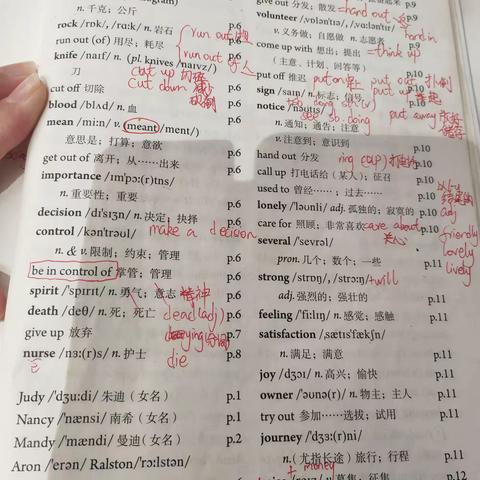 n. 千克；公斤
rock /rɒk/, /rɑːk/ n. 岩石 p.6
run out (of) 用尽；耗尽 p.6
run out
run out of
knife /naɪf/ n. (pl. knives /naɪvz/) p.6
刀
cut up 切碎
cut off 切除 p.6
cut down
blood /blʌd/ n. 血 p.6
mean /miːn/ v. (meant /ment/) p.6
意思是；打算；意欲
get out of 离开；从……出来 p.6
importance /ɪmˈpɔː(r)tns/ p.6
n. 重要性；重要
decision /dɪˈsɪʒn/ n. 决定；抉择 p.6
make a decision
control /kənˈtrəʊl/ p.6
n. & v. 限制；约束；管理
be in control of 掌管；管理 p.6
spirit /ˈspɪrɪt/ n. 勇气；意志 p.6
精神
death /deθ/ n. 死；死亡 p.6
dead (adj)
give up 放弃 p.7
dying
nurse /nɜː(r)s/ n. 护士 p.8
die
Judy /ˈdʒuːdi/ 朱迪（女名） p.1
Nancy /ˈnænsi/ 南希（女名） p.1
Mandy /ˈmændi/ 曼迪（女名） p.2
Aron /ˈerən/ Ralston/ˈrɔːlstən/
give out 分发；散发 p.9
=hand out
volunteer /vɒlənˈtɪə/, /vɑːlənˈtɪr/ p.9
v. 义务做；自愿做 n. 志愿者
hand in
come up with 想出；提出 p.10
=think up
（主意、计划、回答等）
put off 推迟 p.10
put on
put out
sign /saɪn/ n. 标志；信号 p.10
put up
notice /ˈnəʊtɪs/ p.10
n. 通知；通告；注意
see sb. doing
put away
v. 注意到；意识到
hand out 分发 p.10
ring (up) 打电话
call up 打电话给（某人）；征召 p.10
used to 曾经……；过去…… p.10
lonely /ˈləʊnli/ adj. 孤独的；寂寞的 p.10
adj
care for 照顾；非常喜欢 p.10
care about
关心
friendly
several /ˈsevrəl/ p.11
lovely
pron. 几个；数个；一些
lively
strong /strɒŋ/, /strɔːŋ/ p.11
+will
adj. 强烈的；强壮的
feeling /ˈfiːlɪŋ/ n. 感觉；感触 p.11
satisfaction /ˌsætɪsˈfækʃn/ p.11
n. 满足；满意
joy /dʒɔɪ/ n. 高兴；愉快 p.11
owner /ˈəʊnə(r)/ n. 物主；主人 p.11
try out 参加……选拔；试用 p.11
journey /ˈdʒɜː(r)ni/ p.11
n.（尤指长途）旅行；行程
+ money
v. 募集；征集 p.12